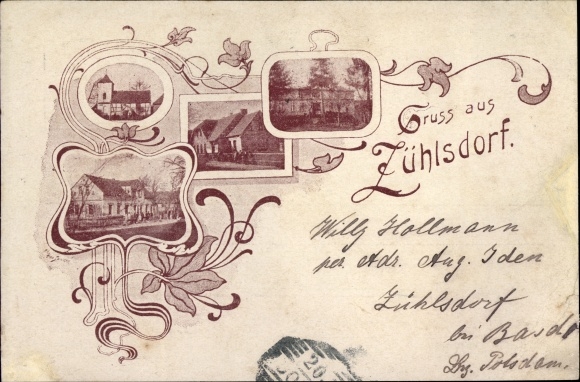 Gruss aus
Zühlsdorf.
Willy Hollmann
per. Adr. Aug. Iden
Zühlsdorf
bei Basdf
Bhz. Potsdam.
20